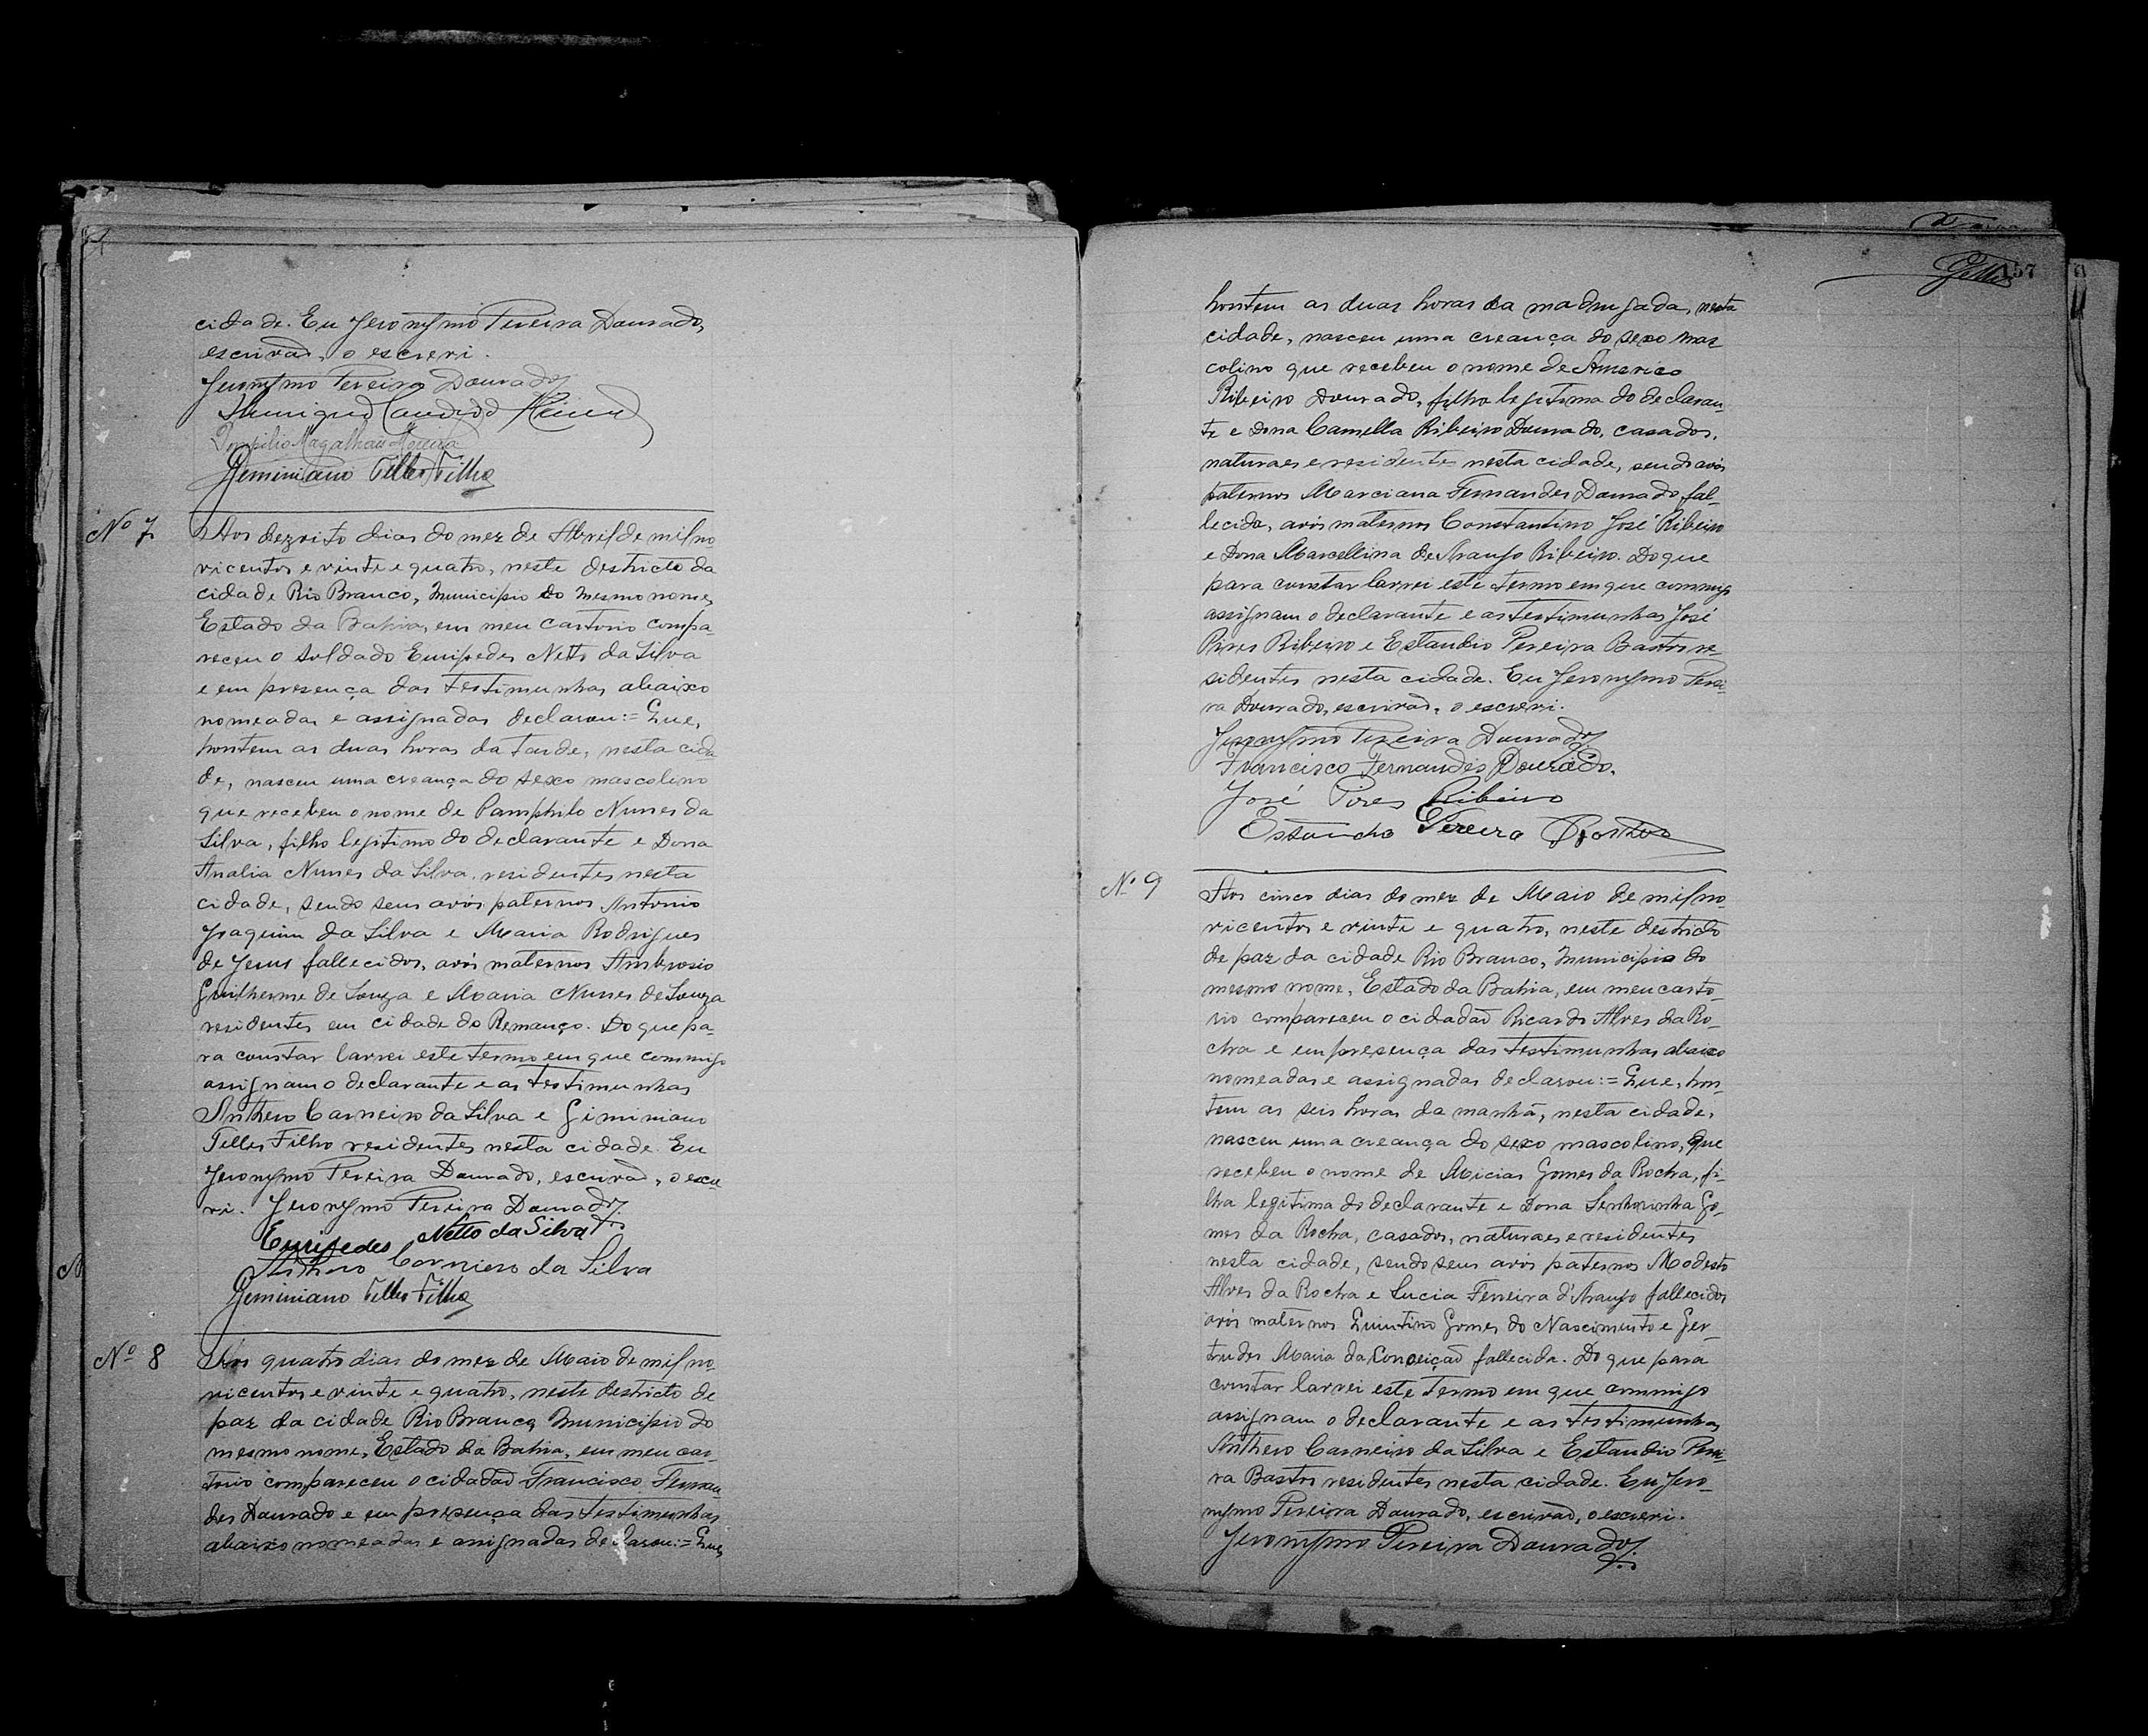 cidade. Eu Jeronymo Pereira Dourado,
escrivaõ, o escrevi.
Jeronymo Pereira Dourado
Candido
Magalhães Moreira
Geminiano Telles Filho
Nº 7
Aos dezoito dias do mez de Abril de mil no-
vicentos e vinte e quatro, neste destricto da
cidade Rio Branco, Municipio do mesmo nome,
Estado da Bahia, em meu cartorio compa-
receu o soldado Euripedes Netto da Silva
e em presença das testimunhas abaixo
nomeadas e assignadas declarou:= Que,
hontem as duas horas da tarde, nesta cida
de, nasceu uma creança do sexo mascolino
que recebeu o nome de Pamphilo Nunes da
Silva, filho legitimo do declarante e Dona
Analia Nunes da Silva, residentes nesta
cidade, sendo seus avós paternos Antonio
Joaquim da Silva e Maria Rodrigues
de Jesus fallecidos, avós maternos Ambrosio
Guilherme de Souza e Maria Nunes de Souza
residentes em cidade do Remanço. Do que pa-
ra constar lavrei este termo em que commigo
assignam o declarante e as testimunhas
Anthero Carneiro da Silva e Giminiano
Telles Filho residentes nesta cidade. Eu
Jeronymo Pereira Dourado, escrivaõ, o escre
vi. Jeronymo Pereira Dourado
Euripedes Netto da Silva
Anthero Carniero da Silva
Geminiano Telles Filho
Nº 8
Aos quatro dias do mez de Maio de mil no
vicentos e vinte e quatro, neste destricto de
paz da cidade Rio Branco, Municipio do
mesmo nome, Estado da Bahia, em meu car-
torio compareceu o cidadaõ Francisco Fernan
des Dourado e em presença das testimunhas
abaixo nomeadas e assignadas declarou:= Que,
157
hontem as duas horas da madrugada, nesta
cidade, nasceu uma creança do sexo mas
colino que recebeu o nome de Americo
Ribeiro Dourado, filho legitima do declaran-
te e Dona Camella Ribeiro Dourado, casados,
naturaes e residentes nesta cidade, sendo avós
paternos Marciana Fernandes Dourado fal-
lecida, avós maternos Constantino José Ribeiro
e Dona Marcellina de Araujo Ribeiro. Do que
para constar lavrei este termo em que commigo
assignam o declarante e as testimunhas José
Pires Ribeiro e Estandio Pereira Bastos re-
sidentes nesta cidade. Eu Jeronymo Perei-
ra Dourado, escrivaõ, o escrevi.
Jeronymo Pereira Dourado
Francisco Fernandes Dourado.
José Pires Ribeiro
Pereira Bastos
Nº 9
Aos cinco dias do mez de Maio de mil no-
vicentos e vinte e quatro, neste destricto
de paz da cidade Rio Branco, Municipio do
mesmo nome, Estado da Bahia, em meu carto-
rio compareceu o cidadaõ Ricardo Alves da Ro-
cha e em presença das testimunhas abaixo
nomeadas e assignadas declarou:= Que, hon-
tem as seis horas da manhã, nesta cidade,
nasceu uma creança do sexo mascolino, que
recebeu o nome de Micias Gomes da Rocha, fi-
lha legitima do declarante e Dona Senhorinha Go-
mes da Rocha, casados, naturaes e residentes
nesta cidade, sendo seus avós paternos Modesto
Alves da Rocha e Lucia Ferreira d'Araujo fallecidos
avós maternos Quintino Gomes do Nascimento e Ger-
trudes Maria da Conceiçaõ fallecida. Do que para
constar lavrei este termo em que commigo
assignam o declarante e as testimunhas
Anthero Carneiro da Silva e Estandio Perei-
ra Bastos residentes nesta cidade. Eu Jero-
nymo Pereira Dourado, escrivaõ, o escrevi.
Jeronymo Pereira Dourado